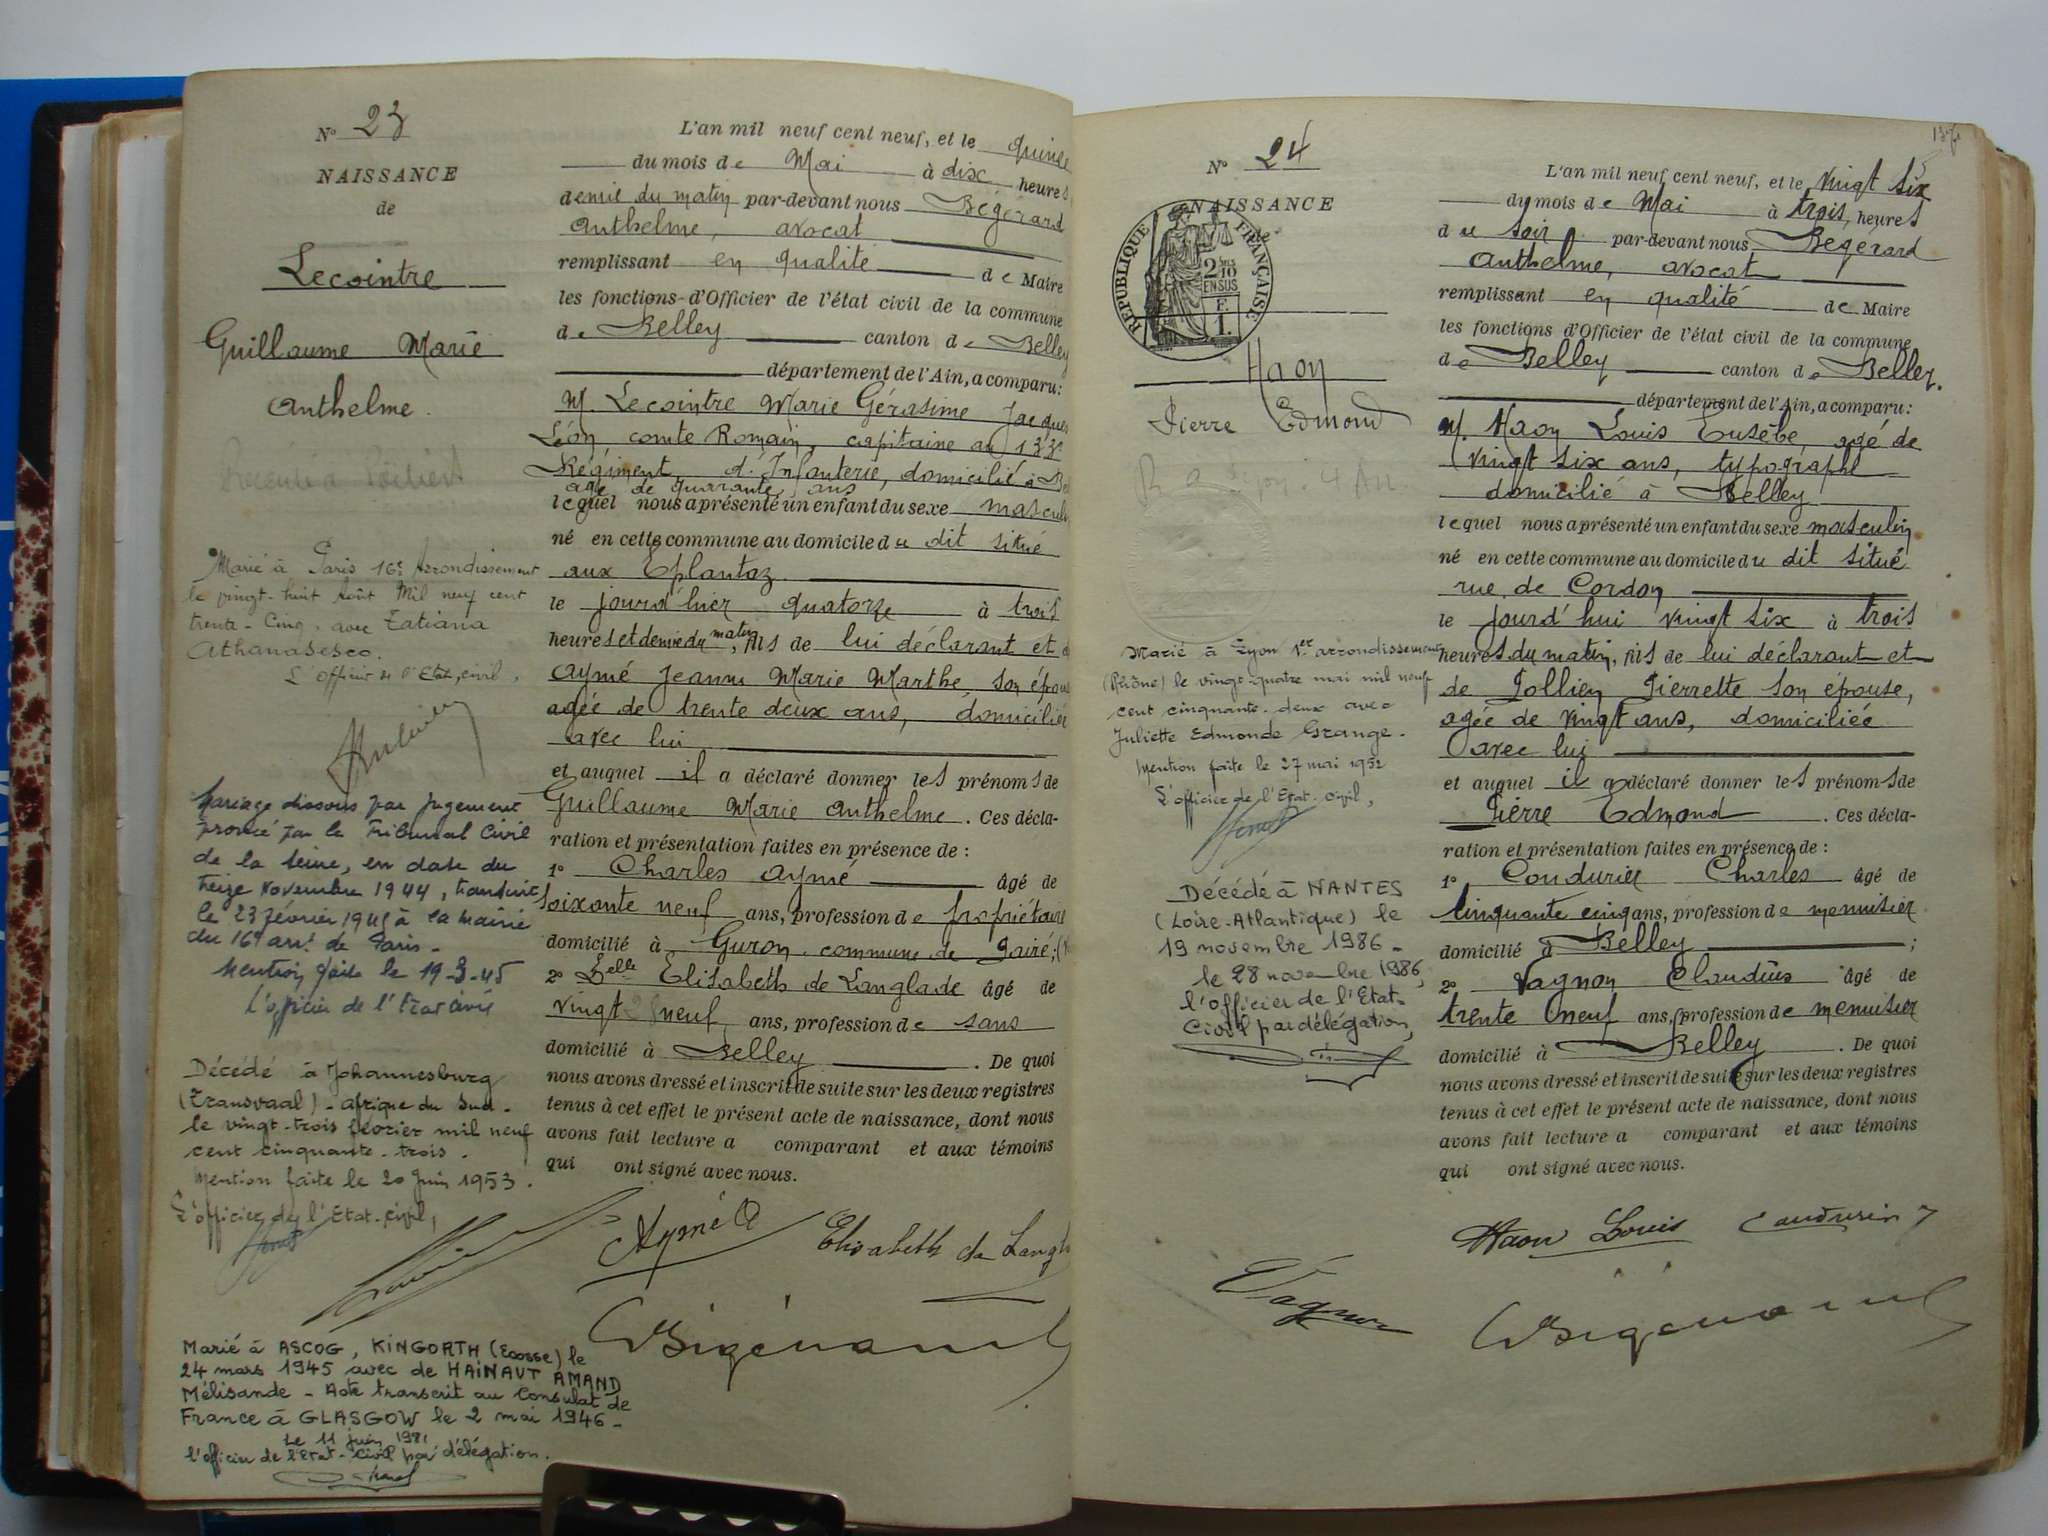 N° 23
NAISSANCE
de
Lecointre
Guillaume Marie
Anthelme.
Marié à Paris 16e Arrondissement
le vingt-huit Août Mil neuf cent
trente-cinq, avec Tatiana
Athanasesco.
L'officier de l'Etat civil,
Mariage dissous par jugement
prononcé par le Tribunal Civil
de la Seine, en date du
treize Novembre 1944, transcrit
le 23 février 1945 à la mairie
du 16e arrt de Paris -
Mention faite le 19-3-45
L'officier de l'Etat civil
Décédé à Johannesburg
(Transvaal) - Afrique du Sud -
le vingt-trois février mil neuf
cent cinquante-trois.
Mention faite le 20 Juin 1953.
L'officier de l'Etat-civil,
Marié à ASCOG, KINGORTH (Ecosse) le
24 mars 1945 avec de HAINAUT AMAND
Mélisande - Acte transcrit au Consulat de
France à GLASGOW le 2 mai 1946 -
Le 11 juin 1981
l'officier de l'Etat-Civil par délégation.
L'an mil neuf cent neuf, et le quinze
du mois de Mai à dix heures
demie du matin par-devant nous Bégérard
Anthelme, avocat
remplissant en qualité de Maire
les fonctions d'Officier de l'état civil de la commune
de Belley canton de Belley
département de l'Ain, a comparu:
M. Lecointre Marie Gérasime Jacques
Léon comte Romain, capitaine au 133e
Régiment d'Infanterie, domicilié à Bel
agé de quarante ans
lequel nous a présenté un enfant du sexe masculin
né en cette commune au domicile du dit situé
aux Eplantaz
le jourd'hier quatorze à trois
heures et demie du matin, fils de lui déclarant et d
Aymé Jeanne Marie Marthe, son épouse
agée de trente deux ans, domiciliée
avec lui
et auquel il a déclaré donner les prénoms de
Guillaume Marie Anthelme. Ces décla-
ration et présentation faites en présence de :
1° Charles Aymé âgé de
soixante neuf ans, profession de propriétaire
domicilié à Guron, commune de Pairé;
2° Delle Elisabeth de Langlade âgé de
vingt neuf ans, profession de sans
domicilié à Belley. De quoi
nous avons dressé et inscrit de suite sur les deux registres
tenus à cet effet le présent acte de naissance, dont nous
avons fait lecture a comparant et aux témoins
qui ont signé avec nous.
Aymé
Elisabeth de Langl
Bégérard
N° 24
NAISSANCE
de
RÉPUBLIQUE FRANÇAISE
2/10
EN SUS
F.
1.
Haon
Pierre Edmond
Marié à Lyon 1er arrondissement
(Rhône) le vingt-quatre mai mil neuf
cent cinquante-deux avec
Juliette Edmonde Grange.
Mention faite le 27 mai 1952
L'officier de l'Etat-civil,
Décédé à NANTES
(Loire-Atlantique) le
19 novembre 1986 -
le 28 novembre 1986,
l'officier de l'Etat-
Civil par délégation,
L'an mil neuf cent neuf, et le vingt six
du mois de Mai à trois heures
du soir par-devant nous Bégérard
Anthelme, avocat
remplissant en qualité de Maire
les fonctions d'Officier de l'état civil de la commune
de Belley canton de Belley.
département de l'Ain, a comparu:
M. Haon Louis Eusèbe, agé de
vingt six ans, typographe
domicilié à Belley
lequel nous a présenté un enfant du sexe masculin
né en cette commune au domicile du dit situé
rue de Cordon
le jourd'hui vingt six à trois
heures du matin, fils de lui déclarant et
de Jollien Pierrette son épouse,
agée de vingt ans, domiciliée
avec lui
et auquel il a déclaré donner les prénoms de
Pierre Edmond. Ces décla-
ration et présentation faites en présence de :
1° Condurier Charles âgé de
cinquante cinq ans, profession de menuisier
domicilié à Belley ;
2° Vagnon Claudius âgé de
trente neuf ans, profession de menuisier
domicilié à Belley. De quoi
nous avons dressé et inscrit de suite sur les deux registres
tenus à cet effet le présent acte de naissance, dont nous
avons fait lecture a comparant et aux témoins
qui ont signé avec nous.
Haon Louis
Vagnon
Bégérard